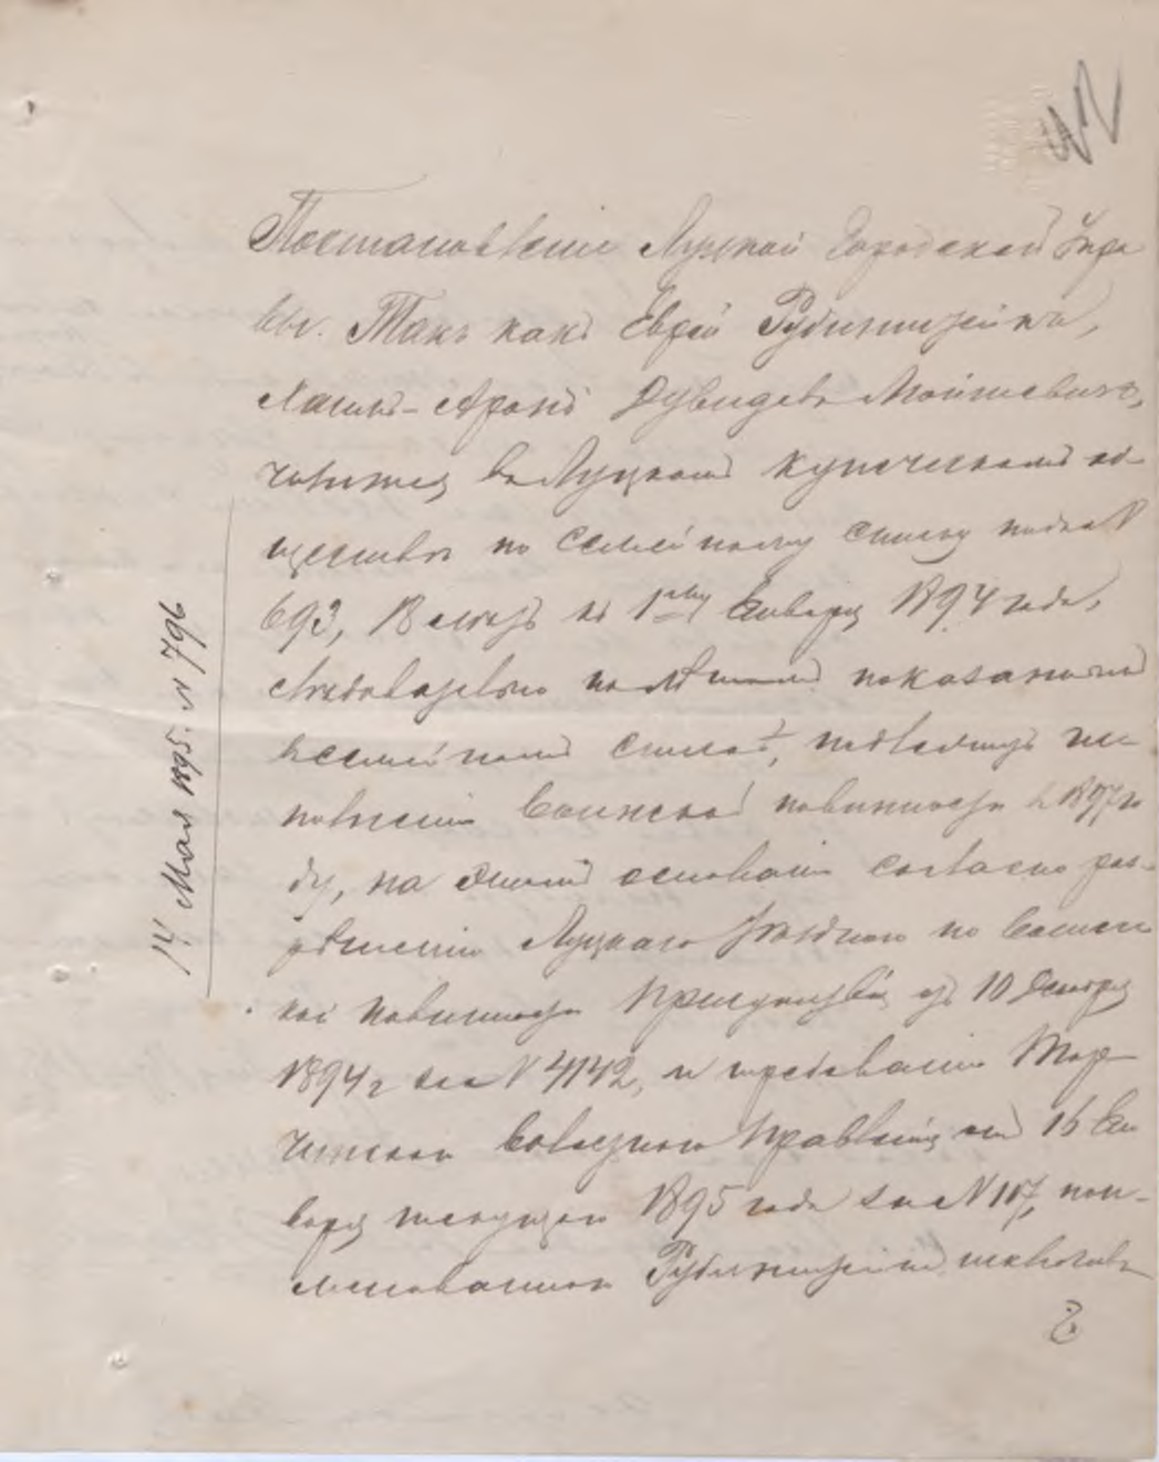 42
Постановленіе Луцкой Городской Упра
вы. Такъ какъ Еврей Рубинштейнъ,
Хаимъ-Аронъ Дувидовъ Мошковичъ,
числится въ Луцкомъ купеческомъ об-
ществѣ по семейному списку подъ №
693, 18 лѣтъ къ 1му Января 1894 года,
слѣдовательно по лѣтамъ показаннымъ
въ семейномъ спискѣ, подлежитъ ис
полненію воинской повинности въ 1897 го
ду, на этомъ основаніи согласно раз-
рѣшенію Луцкаго Уѣзднаго по воинс
кой повинности Присутствія отъ 10 Декабря
1894 г за № 4142, и требованію Тор
чинскаго Волостнаго Правленія отъ 16 Ян
варя текущаго 1895 года за № 117, пои-
менованнаго Рубинштейна
14 Мая 1895. N 796